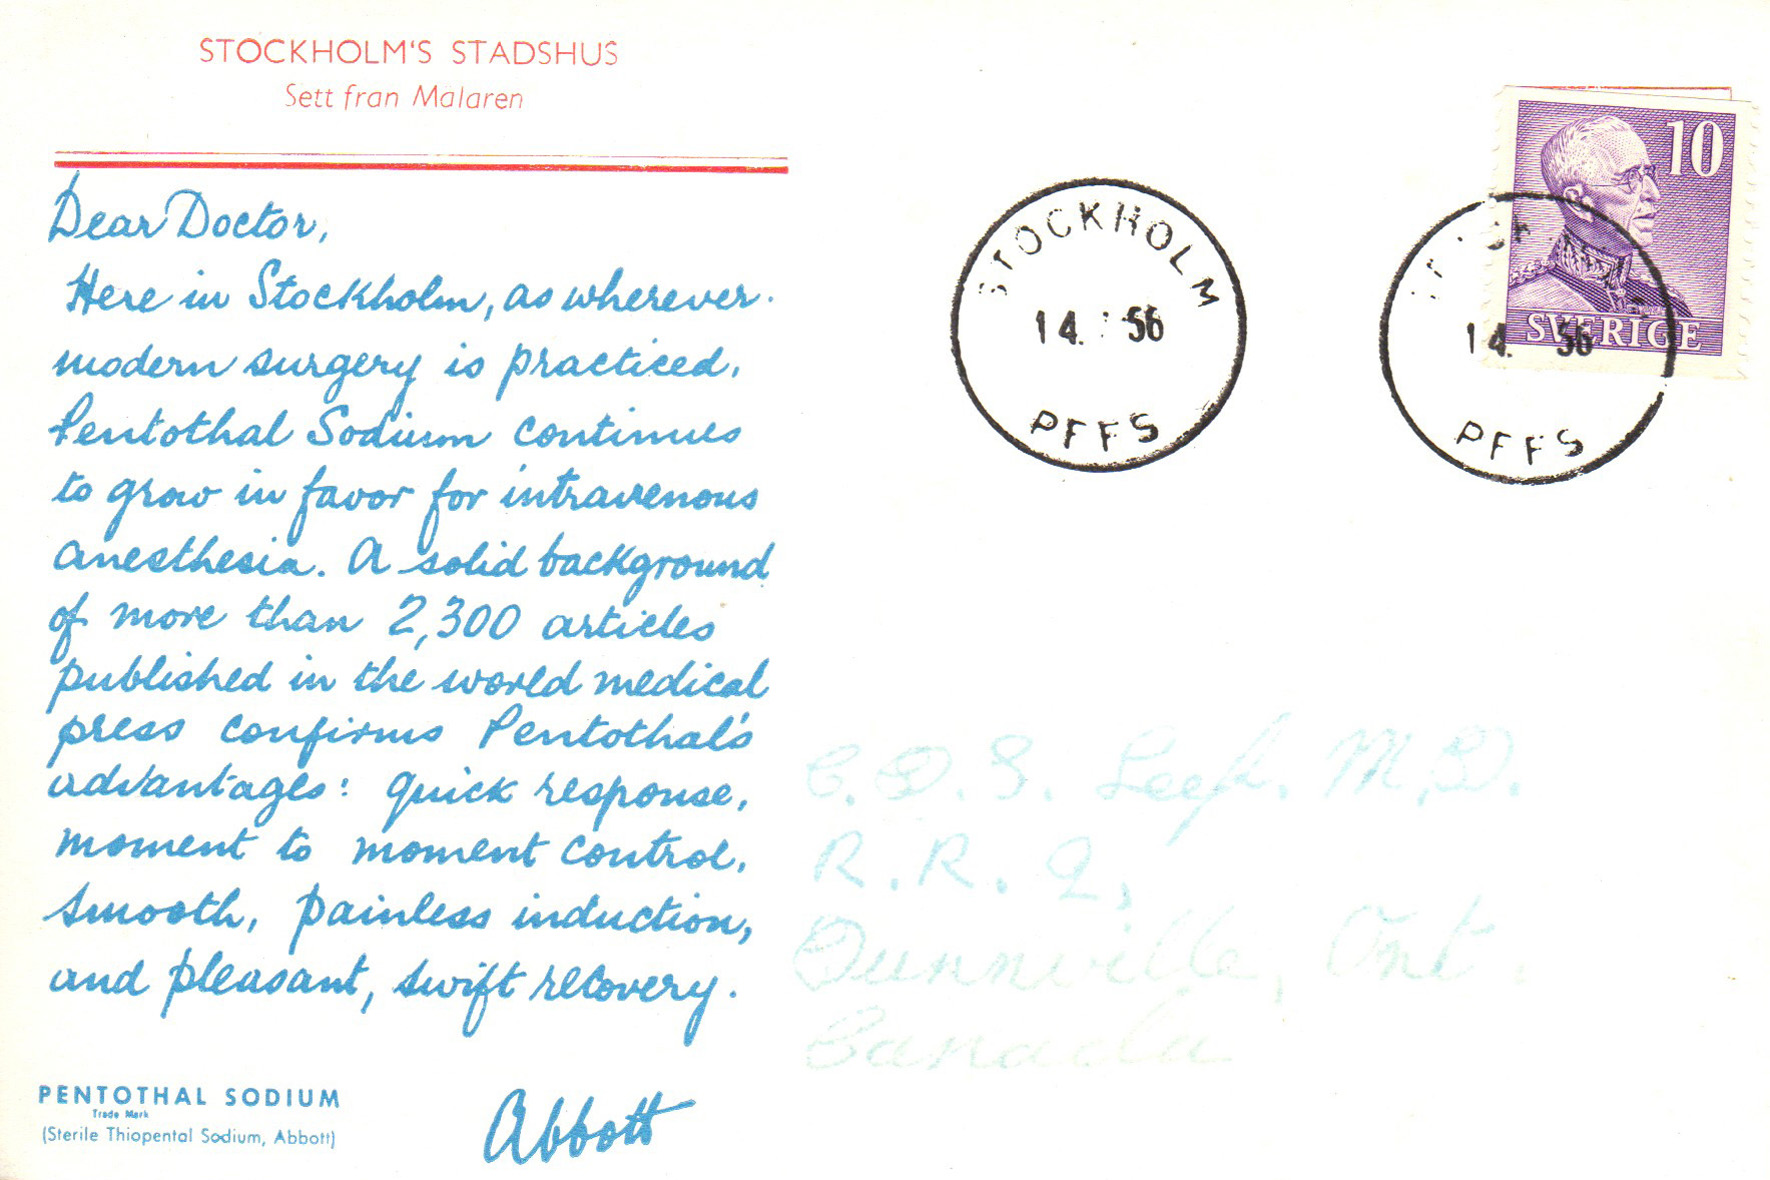 STOCKHOLM'S STADSHUS
Sett fran Malaren
Dear Doctor,
Here in Stockholm, as wherever
modern surgery is practiced,
Pentothal Sodium continues
to grow in favor for intravenous
anesthesia. A solid background
of more than 2,300 articles
published in the world medical
press confirms Pentothal's
advantages: quick response,
moment to moment control,
smooth, painless induction,
and pleasant, swift recovery.
Abbott
PENTOTHAL SODIUM
Trade Mark
(Sterile Thiopental Sodium, Abbott)
STOCKHOLM
14. 56
PFFS
10
SVERIGE
14. 56
PFFS
C. D. S. M.D.
R. R. 2,
Dunnville, Ont.
Canada